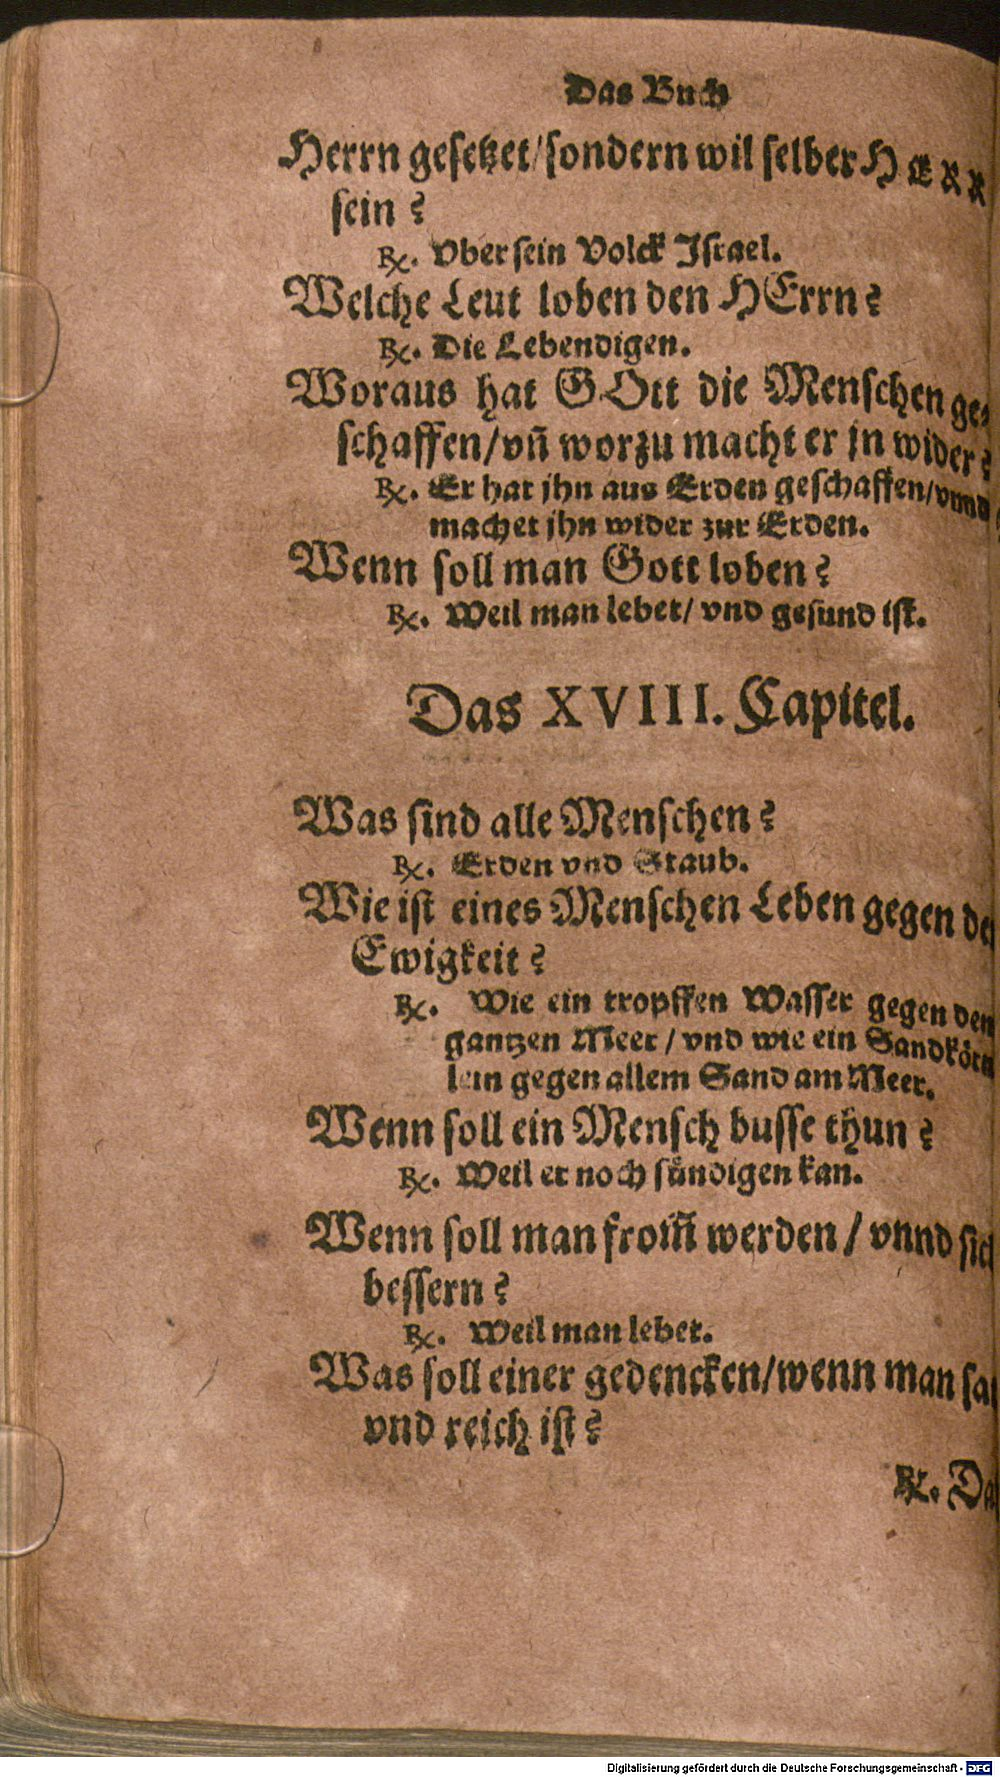 Das Buch
Herrn gesetzet/sondern wil selber HERR
sein?
℞. Vber sein Volck Israel.
Welche Leut loben den HErrn?
℞. Die Lebendigen.
Woraus hat GOtt die Menschen ge⸗
schaffen/vn̄ worzu macht er jn wider?
℞. Er hat jhn aus Erden geschaffen/vnnd
machet jhn wider zur Erden.
Wenn soll man Gott loben?
℞. Weil man lebet/ vnd gesund ist.
Das XVIII. Capitel.
Was sind alle Menschen?
℞. Erden vnd Staub.
Wie ist eines Menschen Leben gegen der
Ewigkeit?
℞. Wie ein tropffen Wasser gegen den
gantzen Meer / vnd wie ein Sandkörn
lein gegen allem Sand am Meer.
Wenn soll ein Mensch busse thun?
℞. Weil er noch sündigen kan.
Wenn soll man from̄ werden / vnnd sich
bessern?
℞. Weil man lebet.
Was soll einer gedencken/wenn man sat
vnd reich ist?
℞. Da
Digitalisierung gefördert durch die Deutsche Forschungsgemeinschaft - DFG